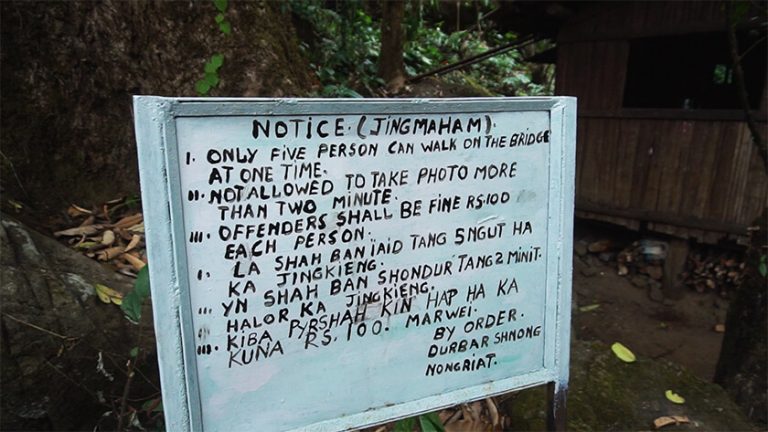 NOTICE. (JINGMAHAM).
I. ONLY FIVE PERSON CAN WALK ON THE BRIDGE
AT ONE TIME.
II. NOT ALLOWED TO TAKE PHOTO MORE
THAN TWO MINUTE.
III. OFFENDERS SHALL BE FINE RS.100
EACH PERSON.
I. LA SHAH BAN ÏAID TANG 5 NGUT HA
KA JINGKIENG.
II. YN SHAH BAN SHONDUR TANG 2 MINIT.
HALOR KA JINGKIENG.
III. KIBA PYRSHAH KIN HAP HA KA
KUNA RS. 100. MARWEI.
BY ORDER.
DURBAR SHNONG
NONGRIAT.